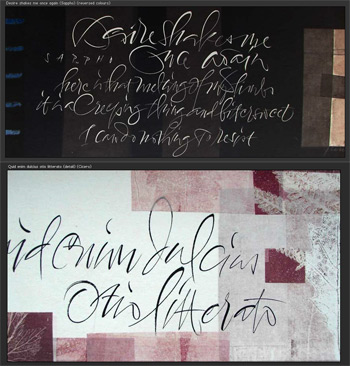 Desire shakes me once again (Sappho) (reversed colours)
Desire shakes me
SAPPHO Once again
here is that melting of my limbs
it is a Creeping thing, and bittersweet
I can do nothing to resist
Quid enim dulcius otio litterato (detail) (Cicero)
uid enim dulcius
Otio litterato